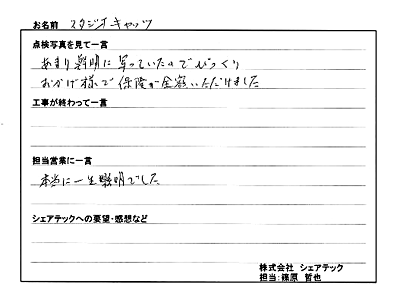 お名前 スタジオキャッツ
点検写真を見て一言
あまり鮮明に写っていたのでびっくり
おかげ様で保険が全額いただけました
工事が終わって一言
担当営業に一言
本当に一生懸明でした
シェアテックへの要望・感想など
株式会社 シェアテック
担当:篠原 哲也